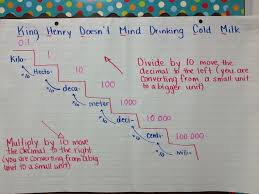 King Henry Doesn't Mind Drinking Cold Milk
0.1
1
Kilo-
10
Hecto-
100
deca-
1.000
meter
10.000
deci-
100.000
centi-
milli-
Divide by 10 move
the decimal to the
left (you are
converting from a small
unit to a bigger unit)
Multiply by 10 move
the decimal to the
right
(you are converting from a big
unit to a small unit)